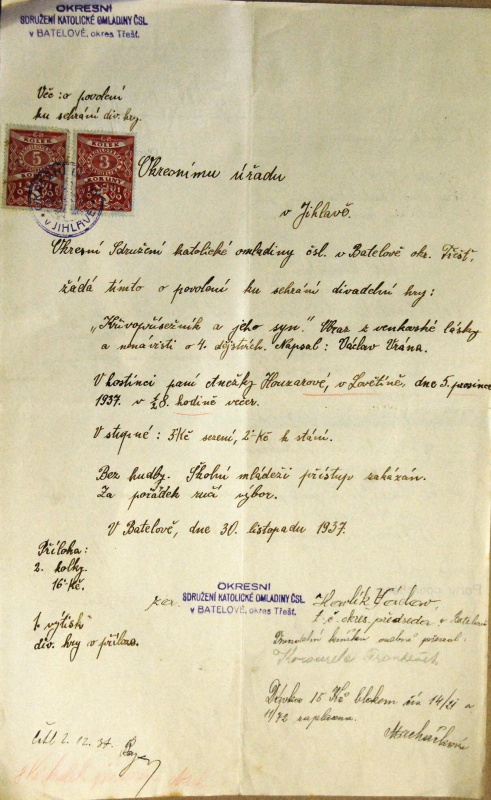 OKRESNÍ
SDRUŽENÍ KATOLICKÉ OMLADINY ČSL.
v BATELOVĚ, okres Třešť.
Věc: o povolení
ku sehrání div. hry.
KOLEK
KOLEK
5
3
v JIHLAVĚ
Okresnímu úřadu
v Jihlavě.
Okresní Sdružení katolické omladiny čsl. v Batelově okr. Třešť,
žádá tímto o povolení ku sehrání divadelní hry:
„Křivopřísežník a jeho syn." Obraz z venkovské lásky
a nenávisti o 4. dějstvích. Napsal: Václav Vrána.
V hostinci paní Anežky Houzarové, v Lovětíně, dne 5. prosince
1937. v ½8. hodině večer.
Vstupné: 3 Kč sezení, 2 Kč k stání.
Bez hudby. Školní mládeži přístup zakázán.
Za pořádek ručí výbor.
V Batelově, dne 30. listopadu 1937.
Příloha:
2. kolky
16 Kč.
1. výtisk
div. hry v příloze.
OKRESNÍ
SDRUŽENÍ KATOLICKÉ OMLADINY ČSL.
v BATELOVĚ, okres Třešť.
t. č. okres. předseda v Batelově
Dávka 16 Kč blokem
14/21 a
11/42 zaplacena.
2.12.37.